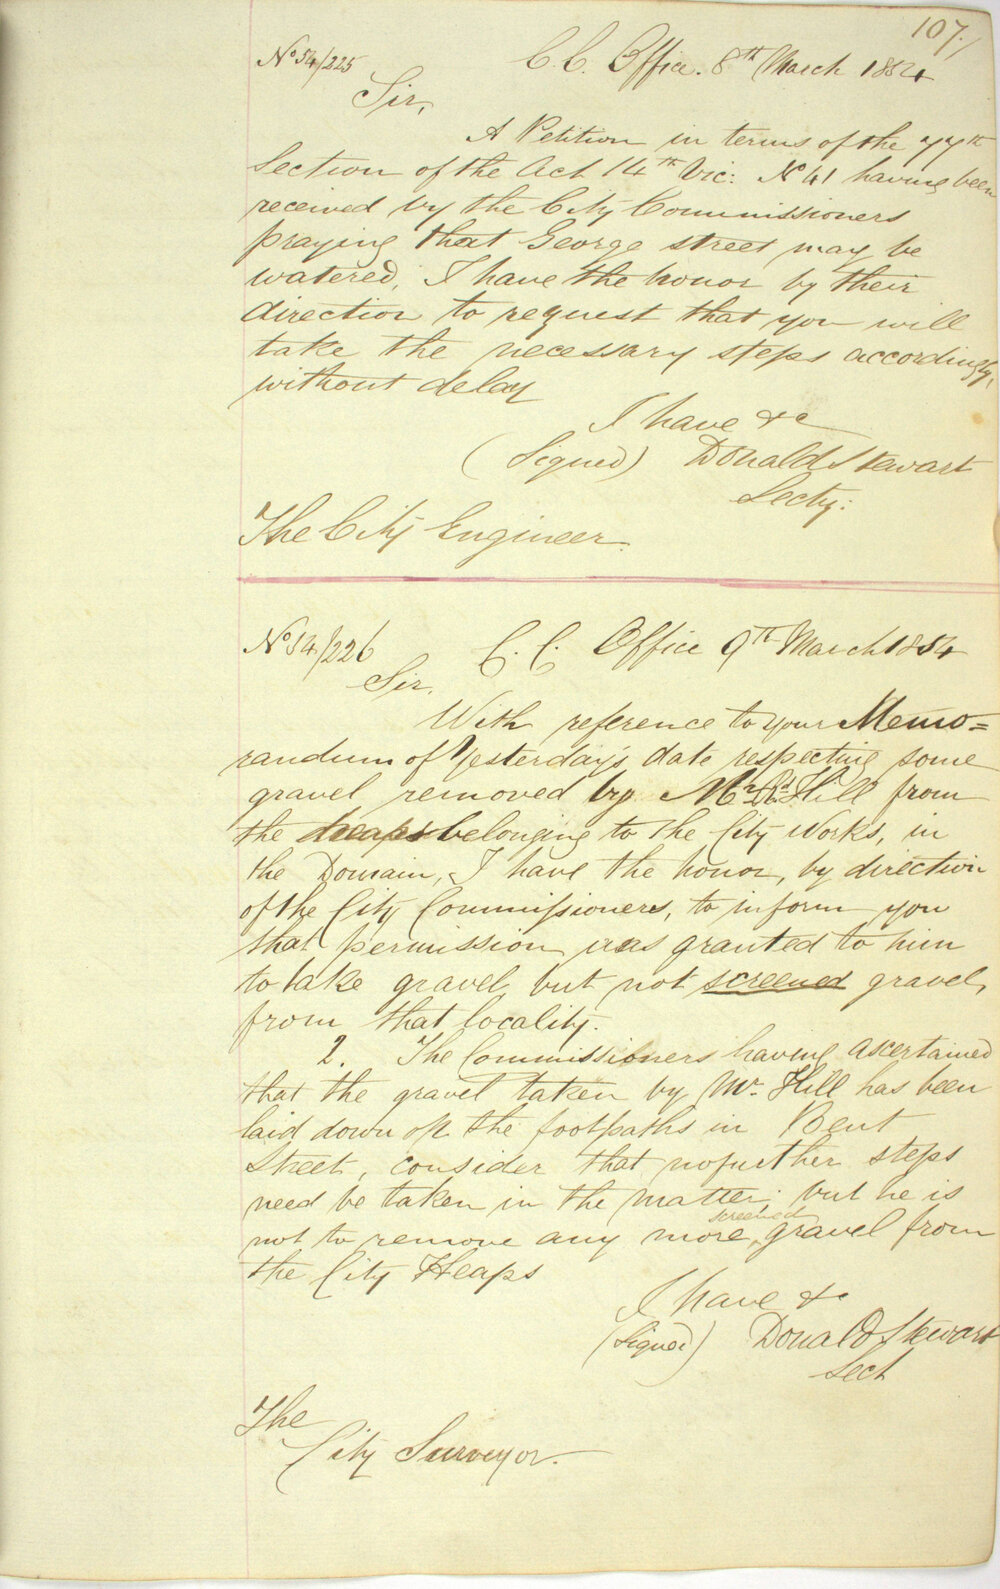 107.
No 54/225
C. C. Office. 8th March 1854
Sir,
A Petition in terms of the 77th
Section of the Act 14th Vic: No 41 having been
received by the City Commissioners
praying that George street may be
watered, I have the honor by their
direction to request that you will
take the necessary steps accordingly,
without delay
I have &c
(Signed) Donald Stewart
Secty:
The City Engineer.
No 54/226
C. C. Office 9th March 1854
Sir,
With reference to your Memo=
randum of Yesterday's date respecting some
gravel removed by Mr Hill from
the heaps belonging to the City Works, in
the Domain, I have the honor, by direction
of the City Commissioners, to inform you
that permission was granted to him
to take gravel, but not screened gravel,
from that locality.
2. The Commissioners having ascertained
that the gravel taken by Mr. Hill has been
laid down on the footpaths in Bent
Street, consider that no further steps
need be taken in the matter; but he is
not to remove any more screened gravel from
the City Heaps
I have &c
(Signed) Donald Stewart
Sect
The
City Surveyor.